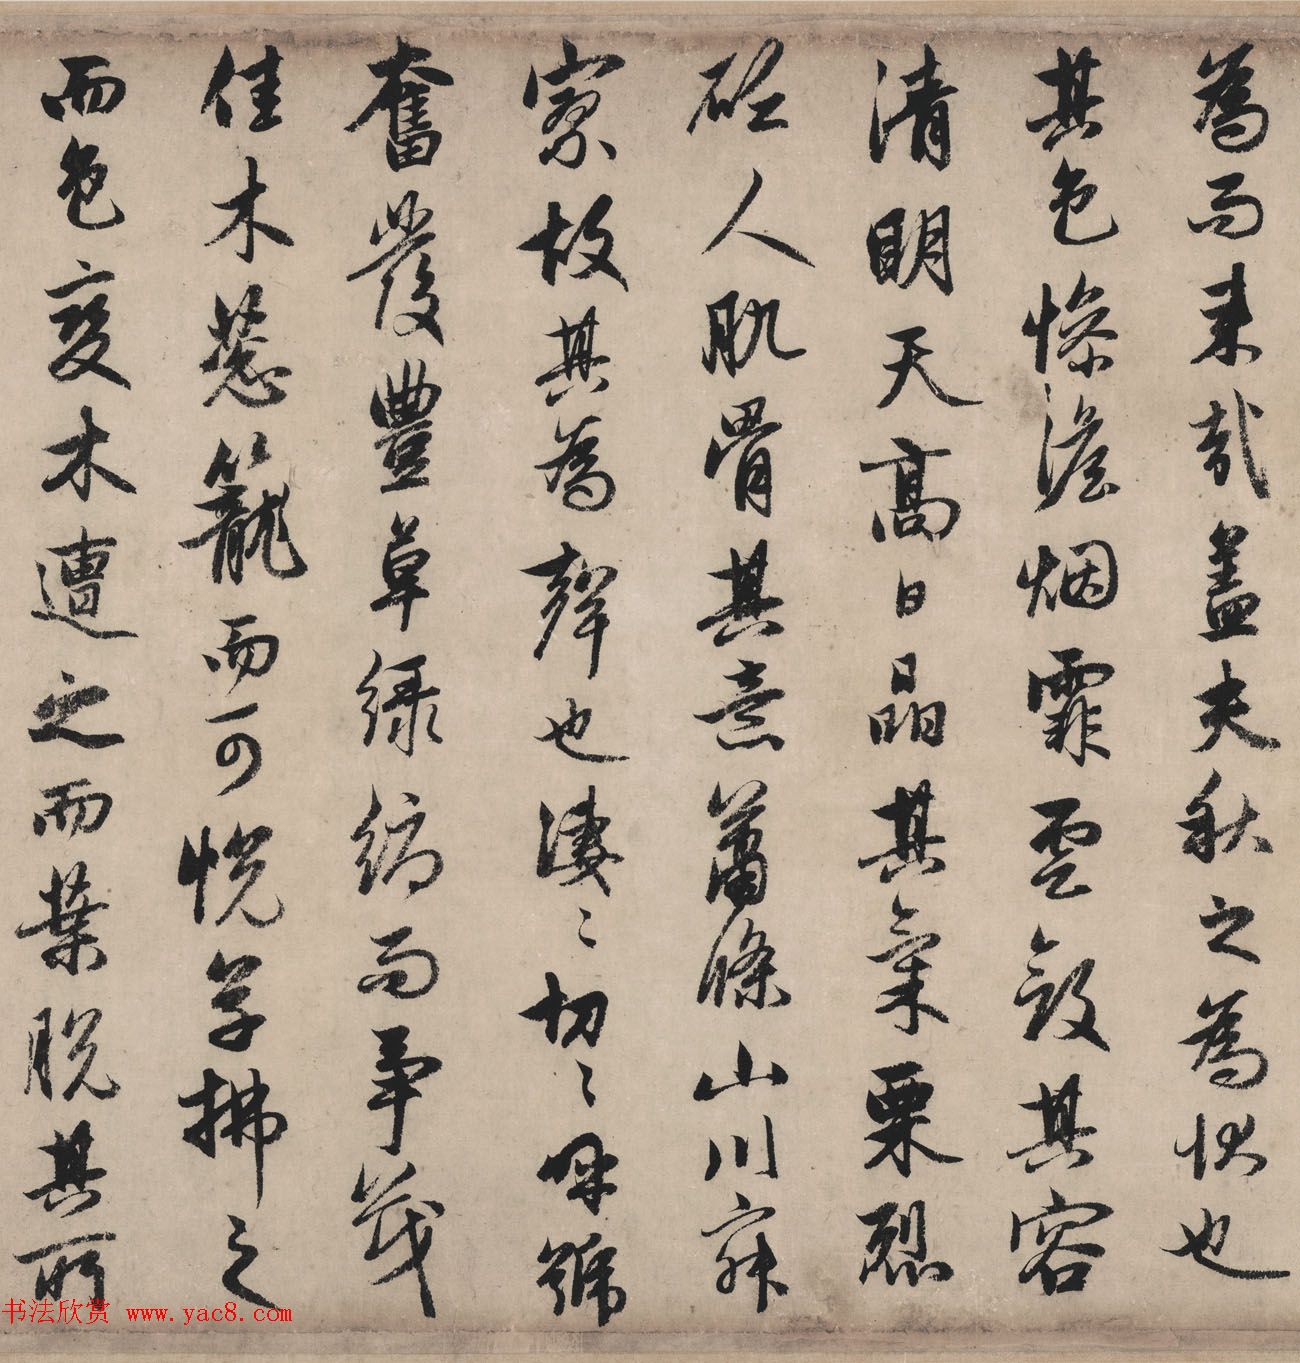 為而來哉蓋夫秋之為狀也
其色慘澹烟霏雲斂其容
清明天高日晶其氣栗烈
砭人肌骨其意蕭條山川寂
寥故其為聲也淒〻切〻呼號
奮發豐草綠縟而爭茂
佳木蔥籠而可悅草拂之
而色變木遭之而葉脫其所
书法欣赏 www.yac8.com